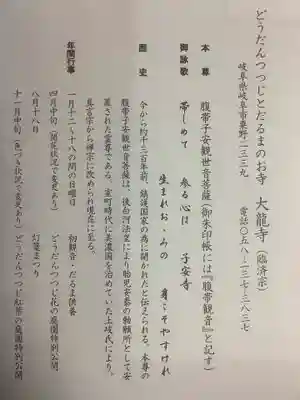 どうだんつつじとだるまのお寺 大龍寺(臨済宗)
岐阜県岐阜市粟野二三三九 電話〇五八-二三七-三八三七
本尊 腹帯子安観世音菩薩(御朱印帳には『腹帯観音』と記す)
御詠歌 帯しめて 参る心は 子安寺
生まれおゝみの 身こそやすけれ
歴史 今から約千三百年前、鎮護国家の為に開かれたと伝えられる。本尊の
腹帯子安観世音菩薩は、後白河法皇により胎児安泰の勅願所として安
置された霊尊である。室町時代に美濃国を治めていた土岐氏により、
真言宗から禅宗に改められ現在に至る。
年間行事 一月十二〜十八の間の日曜日 初観音・だるま供養
四月中旬(開花状況で変更あり) どうだんつつじ花の庭園特別公開
八月十八日 灯篭まつり
十一月中旬(色づき状況で変更あり)どうだんつつじ紅葉の庭園特別公開